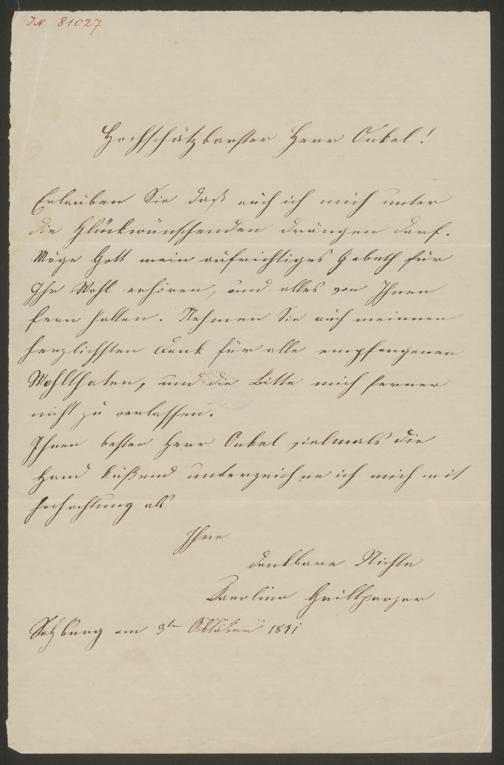 I.N. 81027
Hochschätzbarster Herr Onkel!
Erlauben Sie daß auch ich mich unter
die Glückwünschenden drängen darf.
Möge Gott mein aufrichtiges Gebeth für
Ihr Wohl erhören, und alles von Ihnen
fern halten. Nehmen Sie auch meinen
herzlichsten Dank für alle empfangenen
Wohlthaten, und die Bitte mich ferner
nicht zu verlassen.
Ihnen bester Herr Onkel vielmals die
Hand küßend unterzeichne ich mich mit
Hochachtung als
Ihre
dankbare Nichte
Karoline Grillparzer
Salzburg am 3ten Oktober